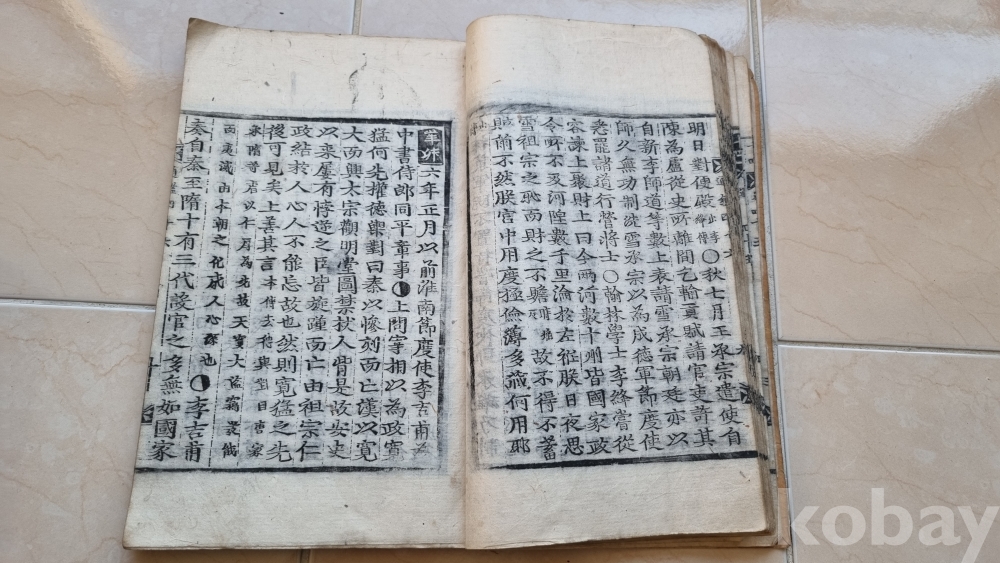 明日對便殿〇秋七月王承宗遣使自
陳爲盧從史所離間乞輸貢賦請官吏許其
自新李師道等數上表請雪承宗朝廷亦以
師久無功制洗雪承宗以爲成德軍節度使
悉罷諸道行營將士〇翰林學士李絳嘗從
容諫上聚財上曰今兩河數十州皆國家政
令所不及河湟數千里淪於左袵朕日夜思
雪祖宗之恥而財之不贍故不得不蓄
不然朕宮中用度極儉薄多藏何用耶
辛卯六年正月以前淮南節度使李吉甫爲
中書侍郎同平章事◐上問宰相以爲政寬
猛何先權德輿對曰秦以慘刻而亡漢以寬
大而興太宗觀明堂圖禁扶人背是故安史
以來屢有悖逆之臣皆旋踵而亡由祖宗仁
政結於人心人不能忘故也然則寬猛之先
後可見矣上善其言本傳云德輿對曰唐家
承隋苛虐以仁厚爲先故天寶大盜竊發俄
而夷滅由本朝之化感人心深也◐李吉甫
奏自秦至隋十有三代設官之多無如國家
kobay